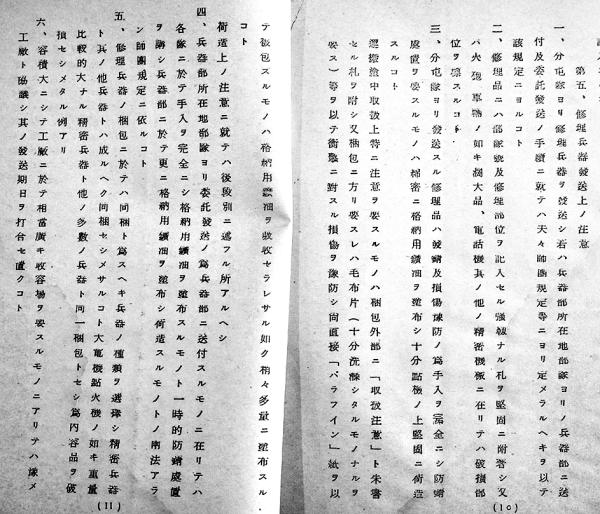 第五、修理兵器發送上ノ注意
一、分屯隊ヨリ修理兵器ヲ發送シ若ハ兵器部所在地部隊ヨリノ兵器部ニ送
付及委託發送ノ手續ニ就テハ夫々師團規定等ニヨリ定メラルヘキヲ以テ
該規定ニヨルコト
二、修理品ニハ部隊號及修理部位ヲ記入セル强靱ナル札ヲ堅固ニ附著シ又
ハ火砲車輛ノ如キ濶大品、電話機其ノ他ノ精密機械ニ在リテハ破損部
位ヲ標スルコト
三、分屯隊ヨリ發送スル修理品ハ發錆及損傷豫防ノ爲手入ヲ完全ニシ防錆
處置ヲ要スルモノハ綿密ニ格納用鑛油ヲ塗布シ十分點檢ノ上堅固ニ荷造
スルコト
運搬途中取扱上特ニ注意ヲ要スルモノハ梱包外部ニ「取扱注意」ト朱書
セル札ヲ附シ又梱包ニ方リ要スレハ毛布片（十分洗滌シタルモノナルヲ
要ス）等ヲ以テ衝擊ニ對スル損傷ヲ豫防シ尚直接「パラフイン」紙ヲ以
(10)
テ被包スルモノハ格納用鑛油ヲ吸收セラレサル如ク稍々多量ニ塗布スル
コト
荷造上ノ注意ニ就テハ後段別ニ述フル所アルヘシ
四、兵器部所在地部隊ヨリ委託發送ノ爲兵器部ニ送付スルモノニ在リテハ
各隊ニ於テ手入ヲ完全ニシ格納用鑛油ヲ塗布スルモノト一時的防錆處置
ヲ講シ兵器部ニ於テ更ニ格納用鑛油ヲ塗布シ荷造スルモノトノ兩法アラ
ン師團規定ニ依ルコト
五、修理兵器ノ梱包ニ於テハ同梱ト爲スヘキ兵器ノ種類ヲ選擇シ精密兵器
ト其ノ他兵器トハ成ルヘク同梱セシメサルコト大電機點火機ノ如キ重量
比較的大ナル精密兵器ト他ノ多數ノ兵器ト同一梱包トセシ爲內容品ヲ破
損セシメタル例アリ
六、容積大ニシテ工廠ニ於テ相當廣キ收容場ヲ要スルモノニアリテハ豫メ
工廠ト協議シ其ノ發送期日ヲ打合セ置クコト
(11)